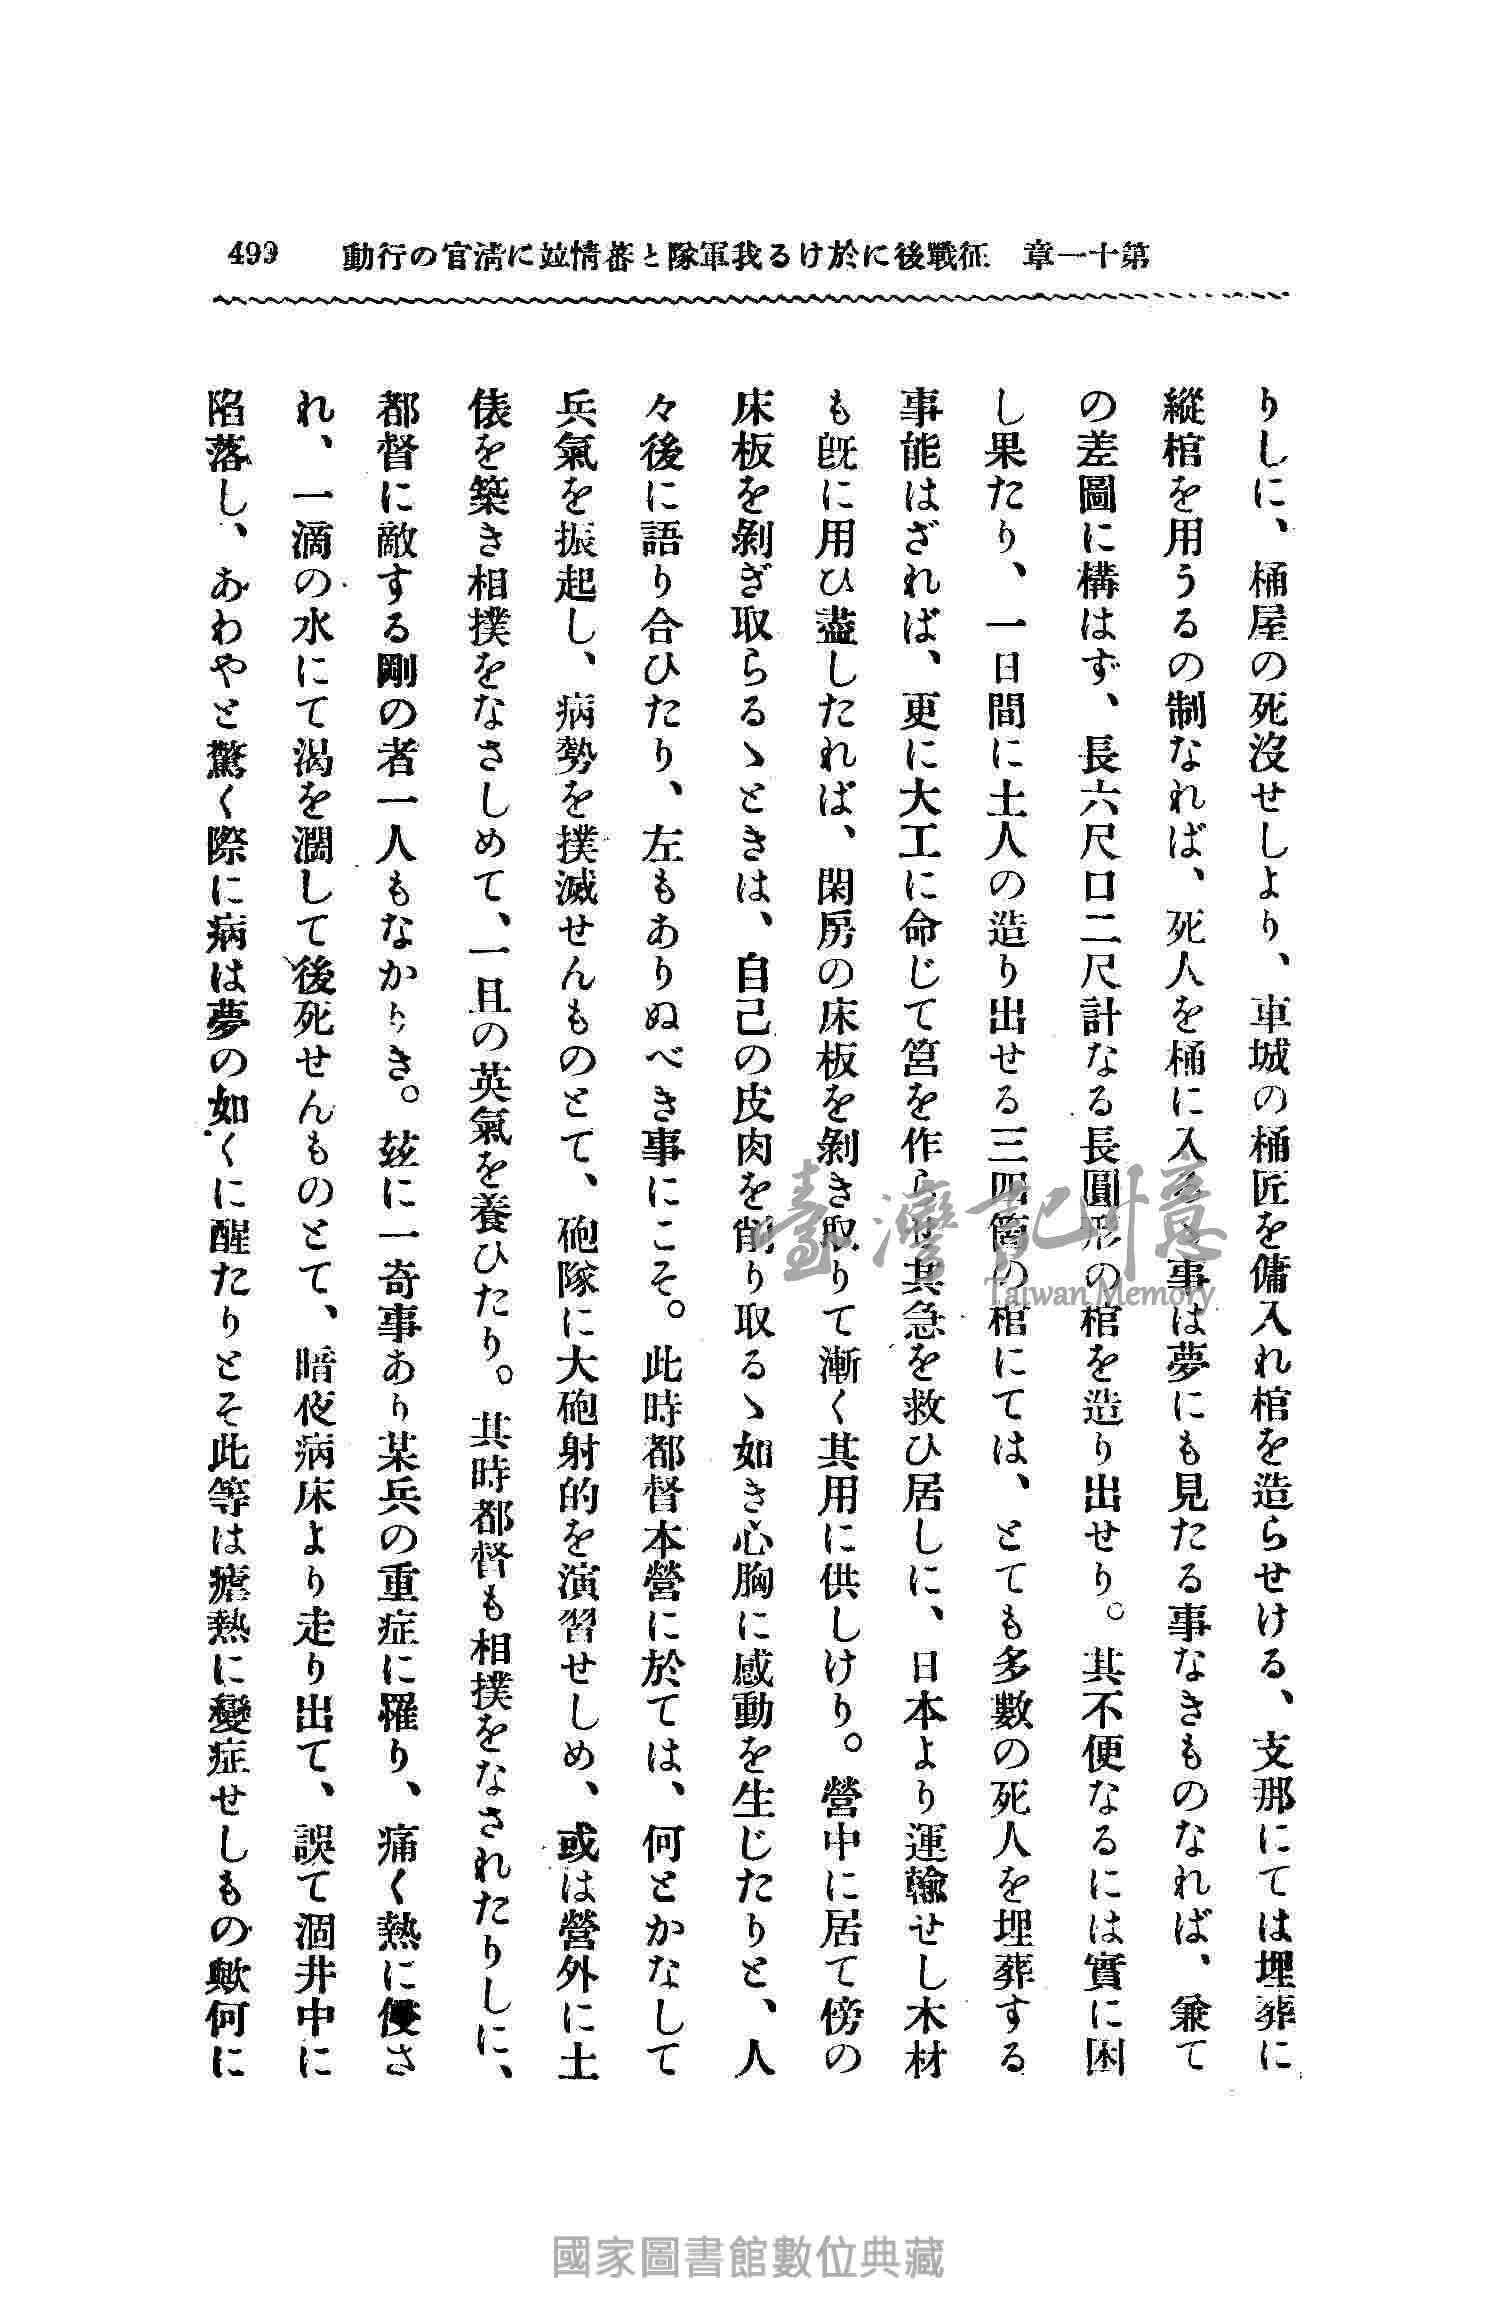 第十一章 征戰後に於ける我軍隊と蕃情竝に淸官の行動 499
りしに、桶屋の死沒せしより、車城の桶匠を傭入れ棺を造らせける、支那にては埋葬に
縱棺を用うるの制なれば、死人を桶に入るゝ事は夢にも見たる事なきものなれば、兼て
の差圖に構はず、長六尺口二尺計なる長圓形の棺を造り出せり。其不便なるには實に困
し果たり、一日間に土人の造り出せる三四箇の棺にては、とても多數の死人を埋葬する
事能はざれば、更に大工に命じて筥を作らせ其急を救ひ居しに、日本より運輸せし木材
も旣に用ひ盡したれば、閑房の床板を剝き取りて漸く其用に供しけり。營中に居て傍の
床板を剝ぎ取らるゝときは、自己の皮肉を削り取るゝ如き心胸に感動を生じたりと、人
々後に語り合ひたり、左もありぬべき事にこそ。此時都督本營に於ては、何とかなして
兵氣を振起し、病勢を撲滅せんものとて、砲隊に大砲射的を演習せしめ、或は營外に土
俵を築き相撲をなさしめて、一且の英氣を養ひたり。其時都督も相撲をなされたりしに、
都督に敵する剛の者一人もなかりき。玆に一奇事あり某兵の重症に罹り、痛く熱に侵さ
れ、一滴の水にて渴を潤して後死せんものとて、暗夜病床より走り出て、誤て涸井中に
陷落し、あわやと驚く際に病は夢の如くに醒たりとそ此等は瘧熱に變症せしもの歟何に
臺灣記憶
Taiwan Memory
國家圖書館數位典藏